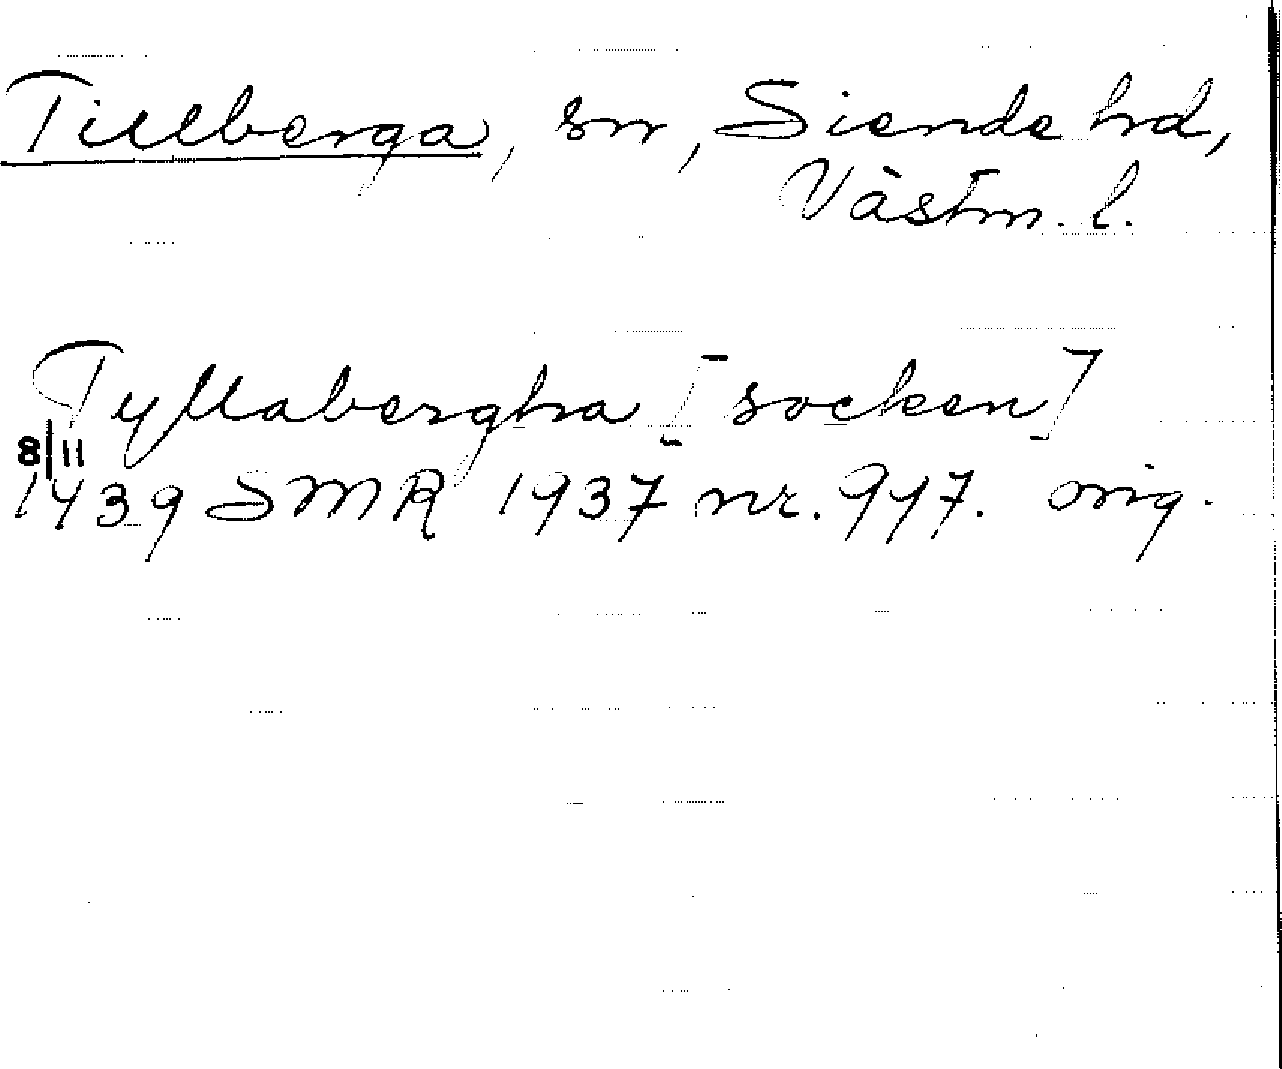 Tillberga, sn, Siende hd,
Västm. l.
Tyllabergha [socken]
8/11
1439 SMR 1937 nr. 947. orig.